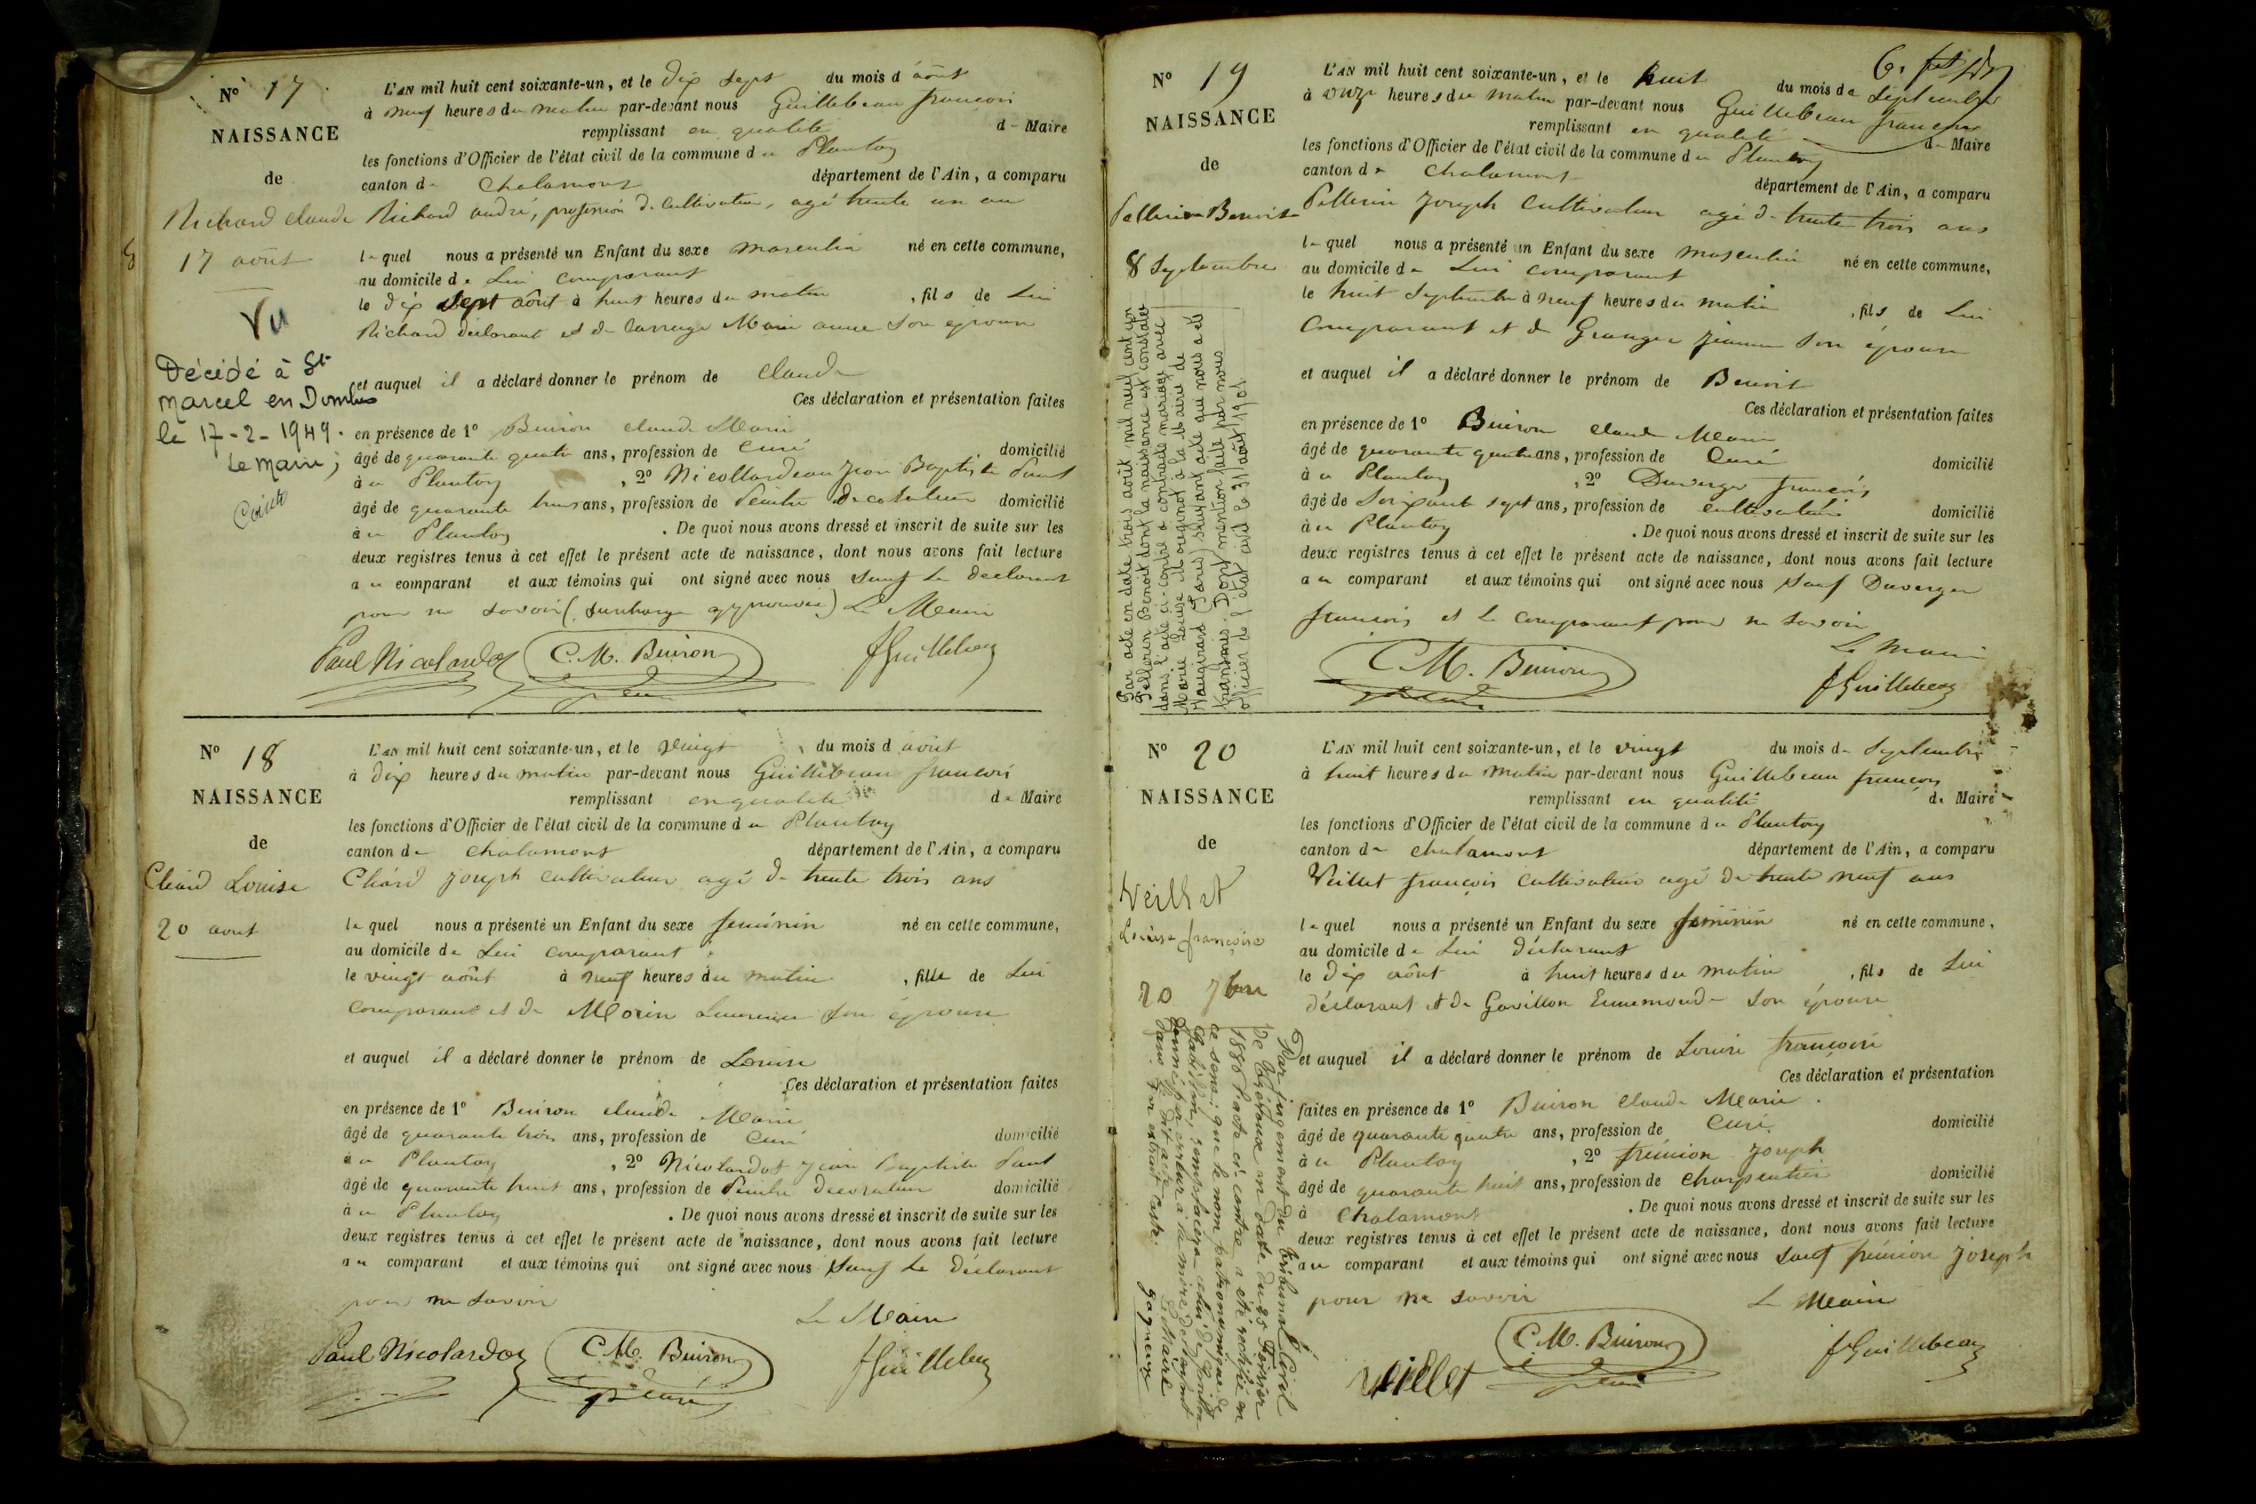 N° 17
NAISSANCE
de
Richard Claude
17 août
Vu
Décédé à St
Marcel en Dombes
le 17-2-1949.
Le Maire,
L'AN mil huit cent soixante-un, et le dix sept du mois d'août
à neuf heures du matin par-devant nous Guillebeau françois
remplissant en qualité de Maire
les fonctions d'Officier de l'état civil de la commune du Plantay
canton de Chalamont département de l'Ain, a comparu
Richard andré, profession de Cultivateur, agé trente un an
lequel nous a présenté un Enfant du sexe masculin né en cette commune,
au domicile de Lui comparant
le dix sept août à huit heures du matin, fils de Lui
Richard déclarant et de Marie anne son épouse
et auquel il a déclaré donner le prénom de Claude
Ces déclaration et présentation faites
en présence de 1° Buiron Claude Marie
âgé de quarante quatre ans, profession de Curé domicilié
à u Plantay, 2° Jean Baptiste Paul
âgé de quarante ans, profession de Peintre Décorateur domicilié
à u Plantay. De quoi nous avons dressé et inscrit de suite sur les
deux registres tenus à cet effet le présent acte de naissance, dont nous avons fait lecture
au comparant et aux témoins qui ont signé avec nous sauf le déclarant
pour ne savoir (surcharge approuvée) Le Maire
Paul Nicolardot C. M. Buiron fGuillebeau
N° 18
NAISSANCE
de
Chard Louise
20 aout
L'AN mil huit cent soixante-un, et le vingt du mois d'août
à dix heures du matin par-devant nous Guillebeau françois
remplissant en qualité de Maire
les fonctions d'Officier de l'état civil de la commune du Plantay
canton de Chalamont département de l'Ain, a comparu
Chard Joseph Cultivateur agé de trente trois ans
lequel nous a présenté un Enfant du sexe feminin né en cette commune,
au domicile de Lui comparant
le vingt août à neuf heures du matin, fille de Lui
comparant et de Morin son épouse
et auquel il a déclaré donner le prénom de Louise
Ces déclaration et présentation faites
en présence de 1° Buiron Claude Marie
âgé de quarante trois ans, profession de Curé domicilié
à u Plantay, 2° Nicolardot Jean Baptiste Paul
âgé de quarante huit ans, profession de Peintre Decorateur domicilié
à u Plantay. De quoi nous avons dressé et inscrit de suite sur les
deux registres tenus à cet effet le présent acte de naissance, dont nous avons fait lecture
au comparant et aux témoins qui ont signé avec nous Sauf Le Déclarant
pour ne savoir Le Maire
Paul Nicolardot C. M. Buiron curé fGuillebeau
N° 19
NAISSANCE
de
Pellerin Benoit
8 Septembre
Par acte en date trois août mil neuf cent un
Pellerin Benoit dont la naissance est constatée
dans l'acte ci-contre a contracté mariage avec
Marie Louise à la mairie de
Vaugirard (Paris) suivant acte que nous a été
transmis. Dont mention faite par nous
officier de l'état civil le 31 août 1901
L'AN mil huit cent soixante-un, et le huit du mois de Septembre
à onze heures du matin par-devant nous Guillebeau françois
remplissant en qualité de Maire
les fonctions d'Officier de l'état civil de la commune du Plantay
canton de Chalamont département de l'Ain, a comparu
Pellerin Joseph Cultivateur agé de trente trois ans
lequel nous a présenté un Enfant du sexe masculin né en cette commune,
au domicile de Lui comparant
le huit Septembre à neuf heures du matin, fils de Lui
Comparant et de Granger Jeanne son épouse
et auquel il a déclaré donner le prénom de Benoit
Ces déclaration et présentation faites
en présence de 1° Buiron Claude Marie
âgé de quarante quatre ans, profession de Curé domicilié
à u Plantay, 2° Duverger françois
âgé de Soixante sept ans, profession de cultivateur domicilié
à u Plantay. De quoi nous avons dressé et inscrit de suite sur les
deux registres tenus à cet effet le présent acte de naissance, dont nous avons fait lecture
au comparant et aux témoins qui ont signé avec nous sauf Duverger
françois et le comparant pour ne savoir
Le Maire
C. M. Buiron fGuillebeau
N° 20
NAISSANCE
de
Veillet
Louise françoise
20 7bre
Par jugement du Tribunal Civil
de Trévoux en date du 25 Février
1886 l'acte ci-contre a été rectifié en
ce sens: que le nom patronymique de
L'AN mil huit cent soixante-un, et le vingt du mois de Septembre
à huit heures du matin par-devant nous Guillebeau françois
remplissant en qualité de Maire
les fonctions d'Officier de l'état civil de la commune du Plantay
canton de Chalamont département de l'Ain, a comparu
Veillet françois Cultivateur agé de trente neuf ans
lequel nous a présenté un Enfant du sexe feminin né en cette commune,
au domicile de Lui déclarant
le dix août à huit heures du matin, fils de Lui
déclarant et de Gavillon Ennemonde son épouse
et auquel il a déclaré donner le prénom de Louise françoise
Ces déclaration et présentation
faites en présence de 1° Buiron Claude Marie
âgé de quarante quatre ans, profession de Curé domicilié
à u Plantay, 2° Joseph
âgé de quarante huit ans, profession de Charpentier domicilié
à Chalamont. De quoi nous avons dressé et inscrit de suite sur les
deux registres tenus à cet effet le présent acte de naissance, dont nous avons fait lecture
au comparant et aux témoins qui ont signé avec nous sauf Joseph
pour ne savoir Le Maire
Veillet C. M. Buiron fGuillebeau